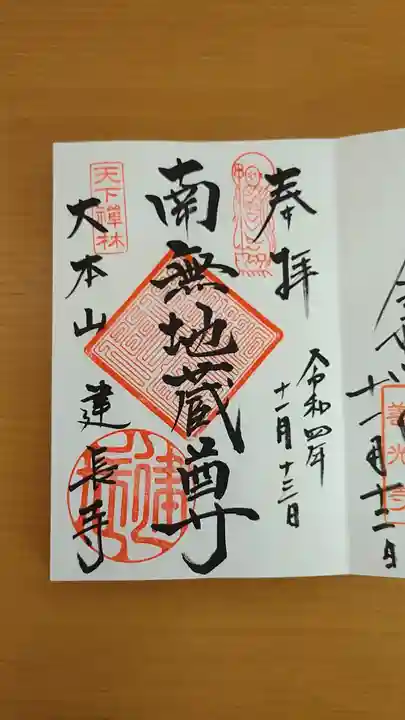 奉拝
令和四年
十一月十三日
南無地蔵尊
天下禅林
大本山建長寺
善光寺